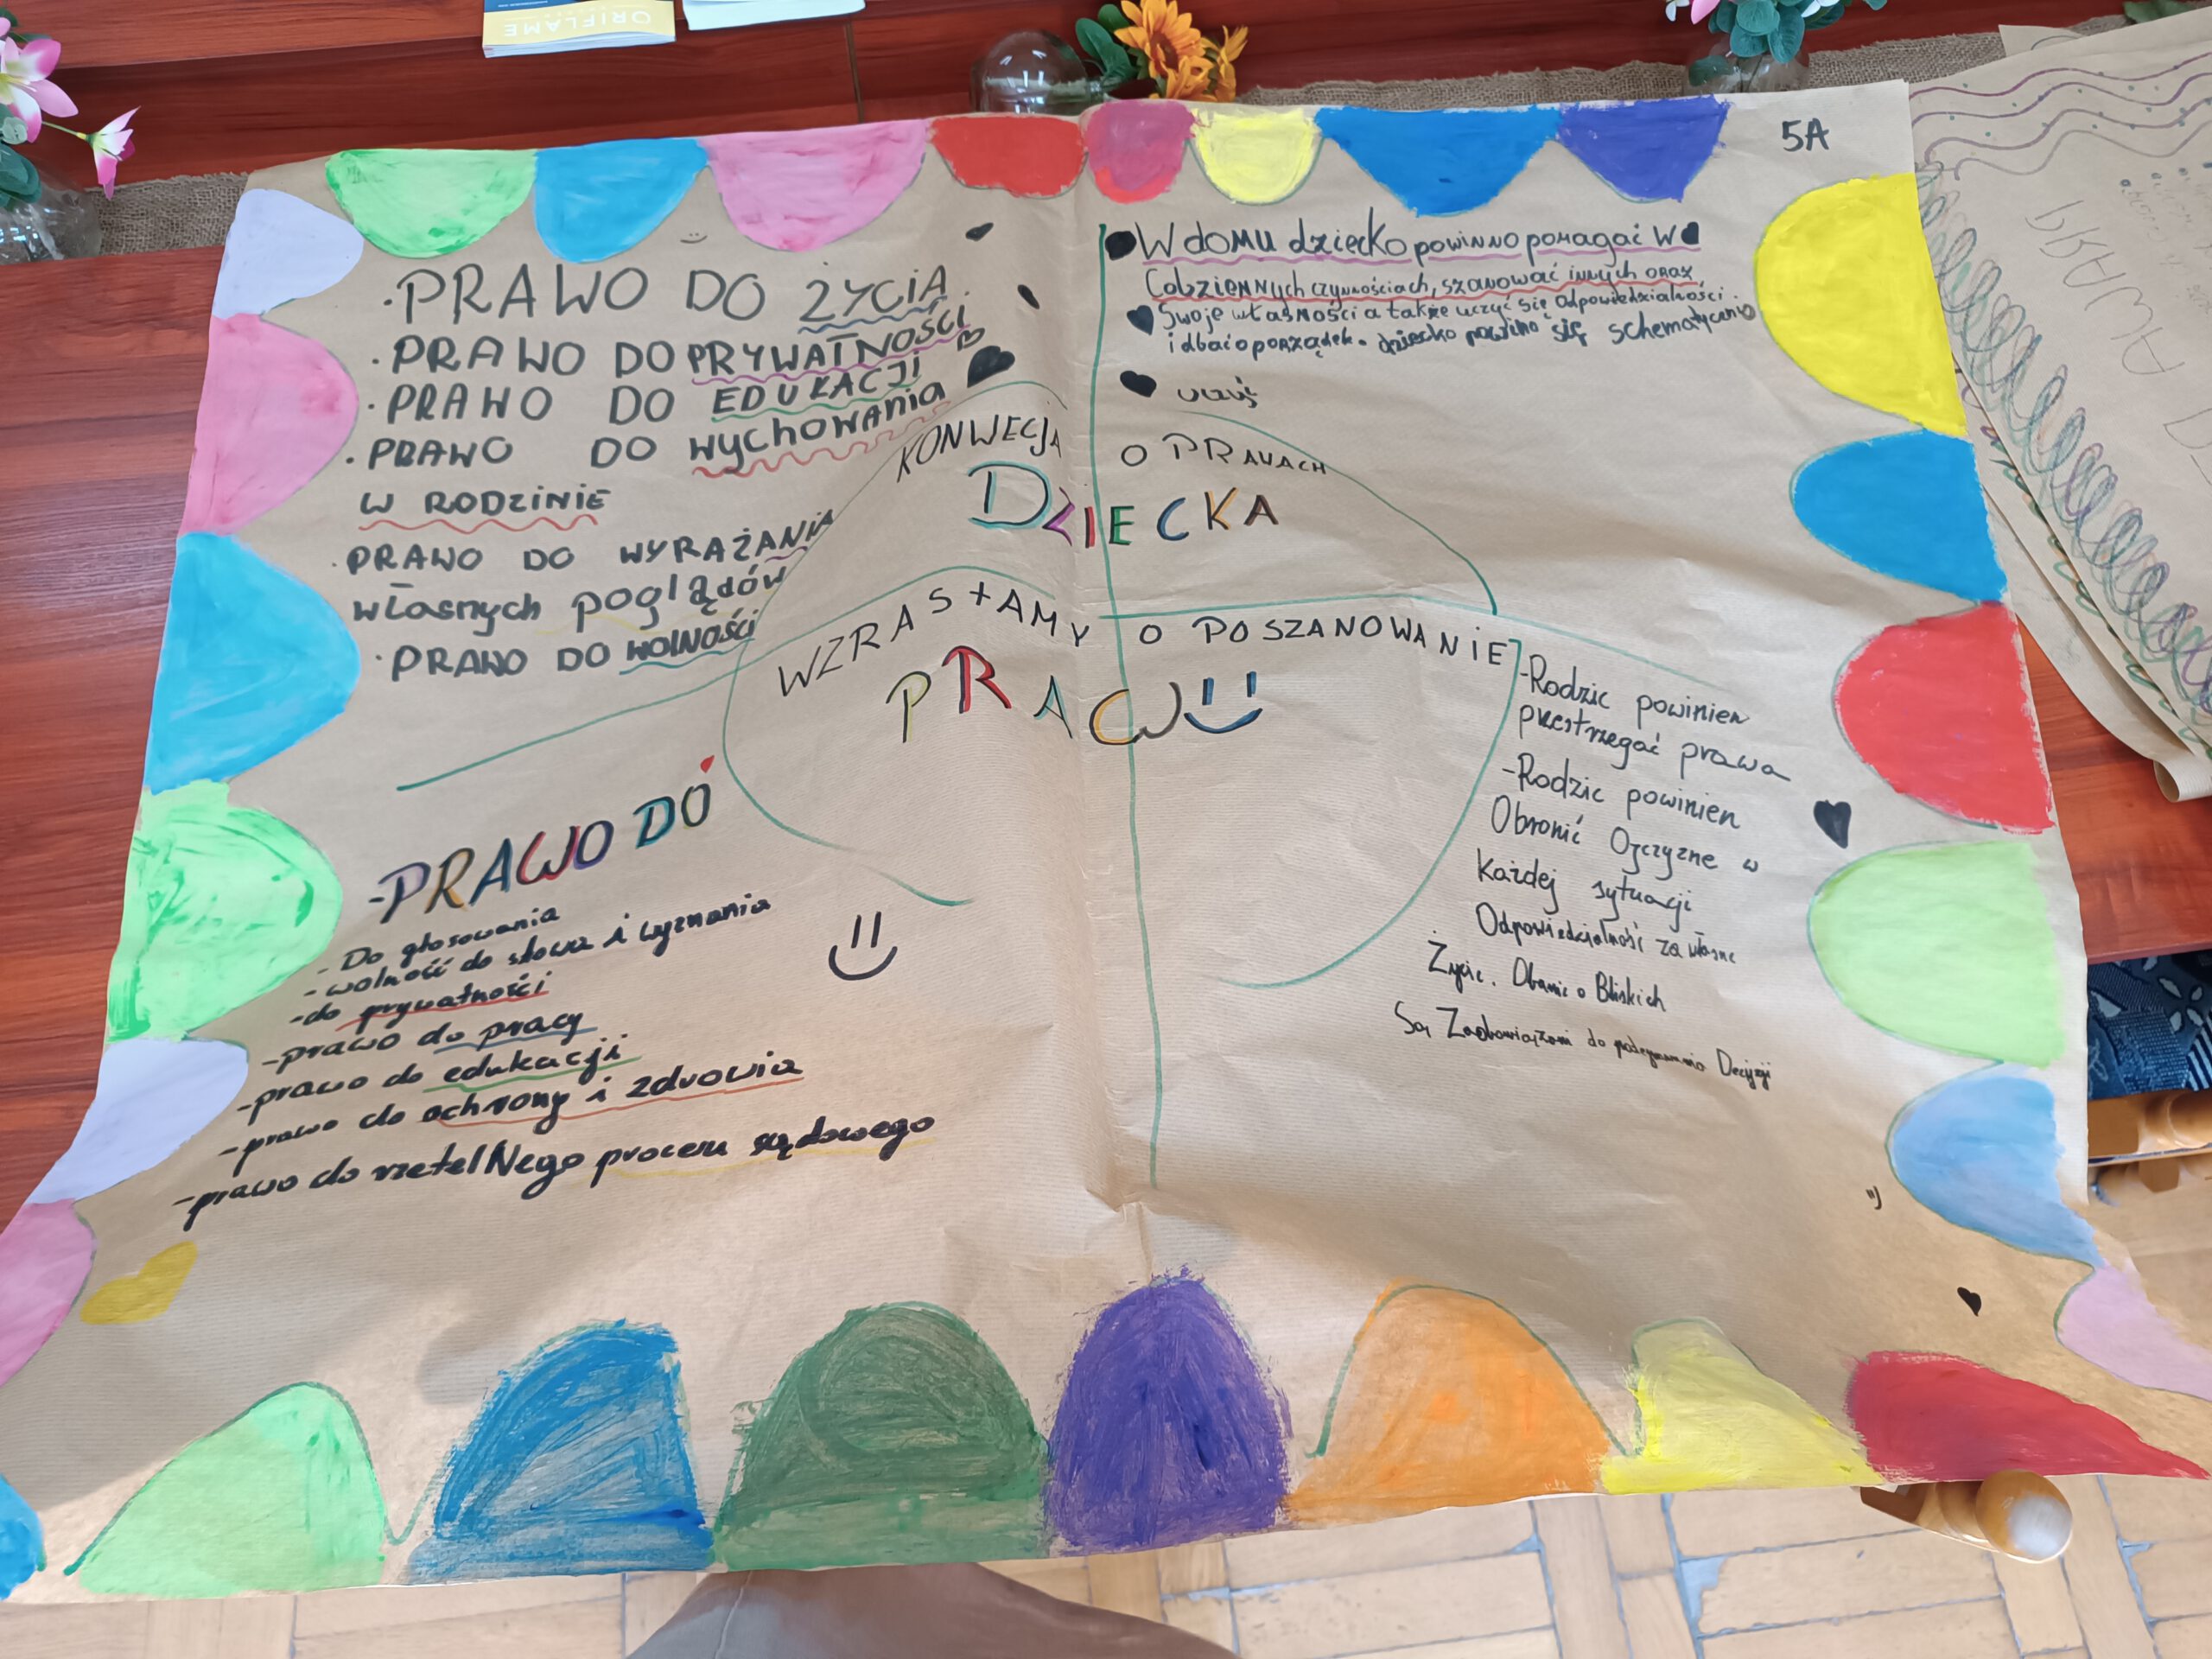 ORIFLAME
5A
·PRAWO DO ŻYCIA
·PRAWO DO PRYWATNOŚCI
·PRAWO DO EDUKACJI
·PRAWO DO wychowania
W RODZINIE
·PRAWO DO WYRAŻANIA
własnych poglądów
·PRAWO DO WOLNOŚCI
W domu dziecko powinno pomagać w
Codziennych czynnościach, szanować innych oraz
Swoje własności a także uczyć się odpowiedzialności
i dbać o porządek. dziecko powinno się schematycznie
uczyć
KONWECJA O PRAWACH
DZIECKA
WZRASTAMY O POSZANOWANIE
PRAW
-Rodzic powinien
przestrzegać prawa
-Rodzic powinien
Obronić Ojczyzne w
Każdej sytuacji
Odpowiedzialność za własne
Życie. Dbanie o Bliskich
Są Zaobowiązani do podejmowania Decyzji
-PRAWO DO
- Do głosowania
- wolność do słowa i wyznania
-do prywatności
-prawo do pracy
-prawo do edukacji
-prawo do ochrony i zdrowia
-prawo do rzetelNego procesu sądowego
PRAWA